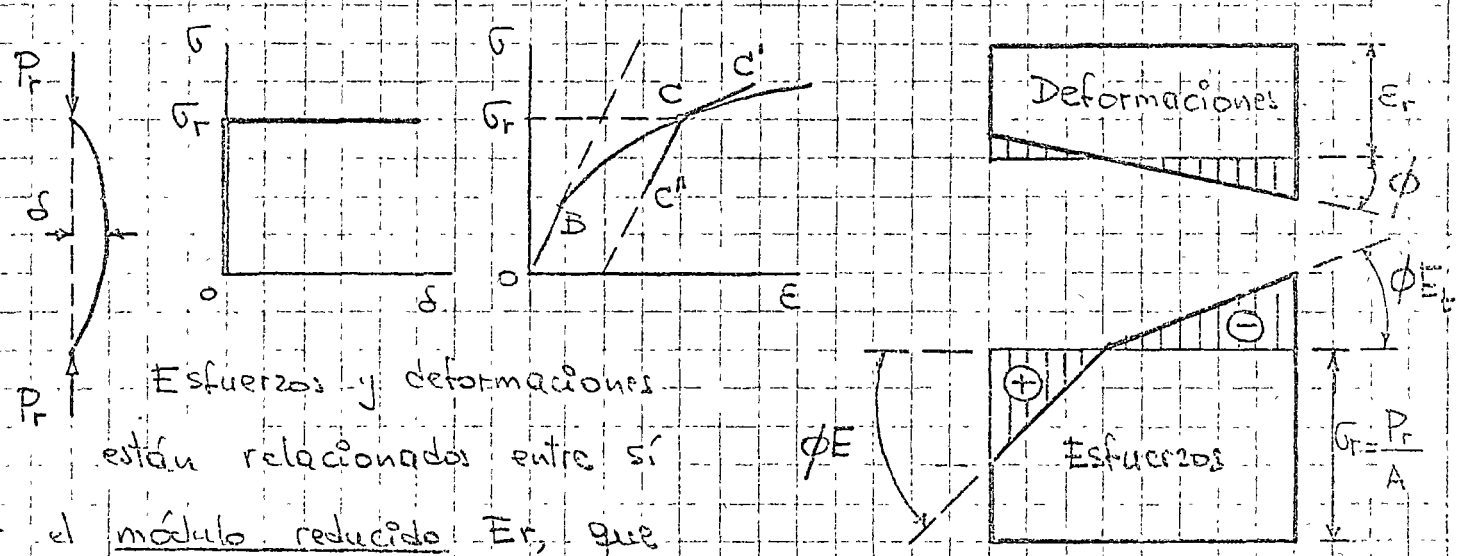 P_r
δ
P_r
σ
σ_r
o
δ
σ
σ_r
C
C'
C"
B
O
ε
Deformaciones
ε_r
ϕ
ϕE_t
⊖
⊕
ϕE
Esfuerzos
σ_r = P_r / A
Esfuerzos y deformaciones
están relacionados entre sí
el módulo reducido Er, que